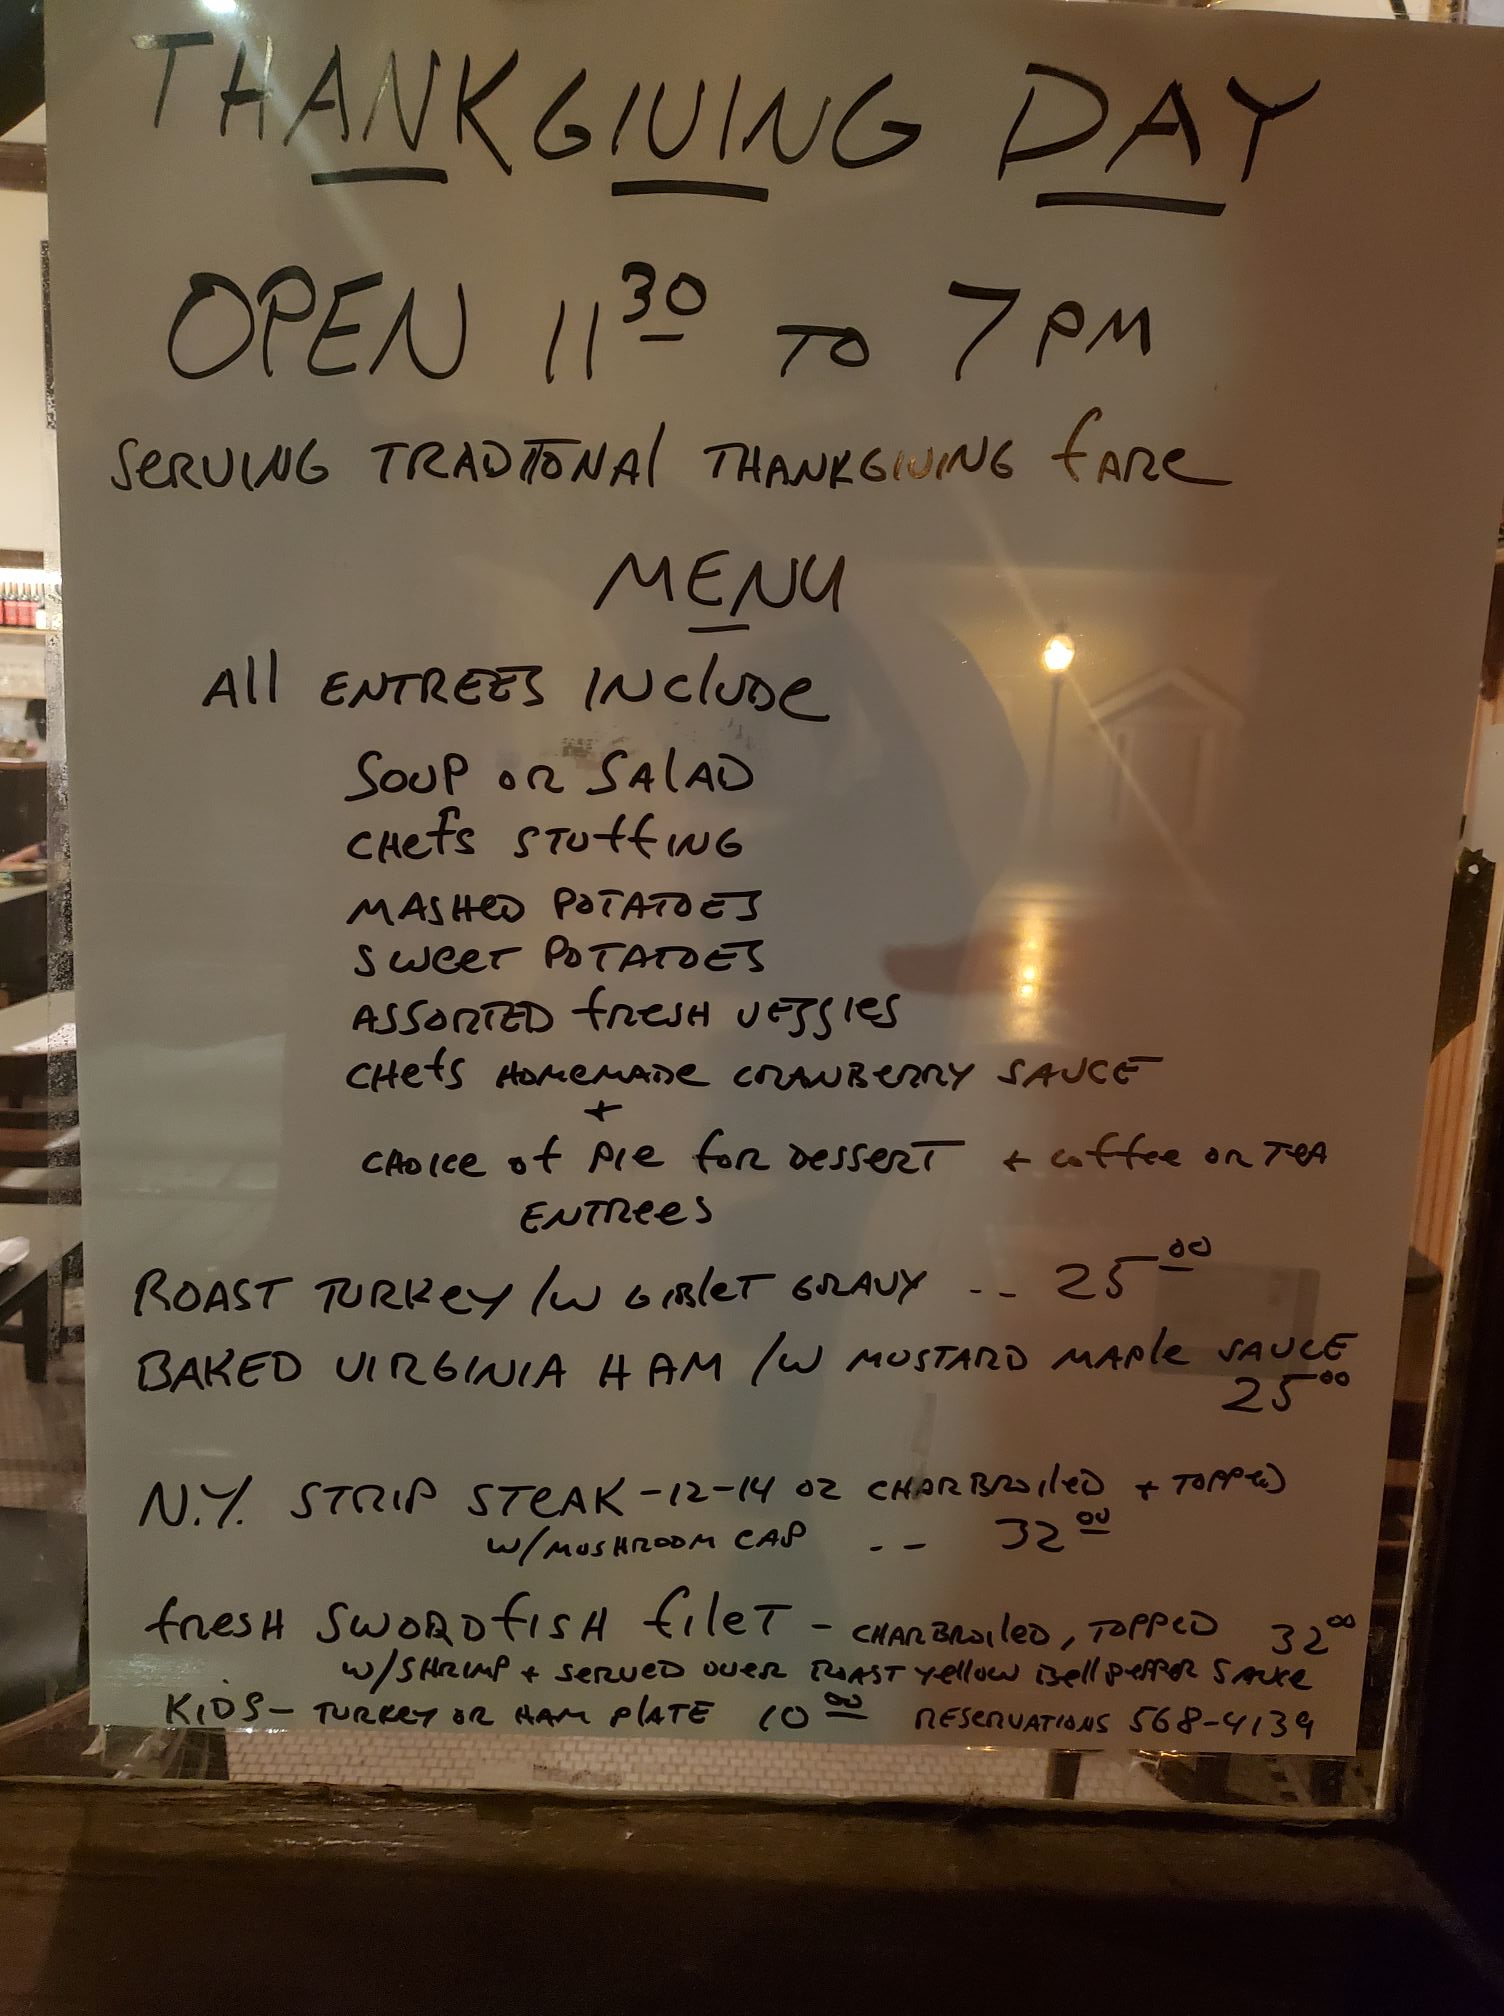 THANKGIVING DAY
OPEN 11 30 TO 7 PM
SERVING TRADITONAL THANKGIVING FARE
MENU
All ENTREES INCLUDE
SOUP OR SALAD
CHEFS STUFFING
MASHED POTATOES
SWEET POTATOES
ASSORTED FRESH VEGGIES
CHEFS HOMEMADE CRANBERRY SAUCE
+
CHOICE OF PIE FOR DESSERT + COFFEE OR TEA
ENTREES
ROAST TURKEY /W GIBLET GRAVY -- 25 00
BAKED VIRGINIA HAM /W MUSTARD MAPLE SAUCE
25 00
N.Y. STRIP STEAK - 12-14 OZ CHARBROILED + TOPPED
W/MUSHROOM CAP -- 32 00
FRESH SWORDFISH FILET - CHARBROILED, TOPPED 32 00
W/SHRIMP + SERVED OVER ROAST YELLOW BELL PEPPER SAUCE
KIDS - TURKEY OR HAM PLATE 10 00 RESERVATIONS 568-4139